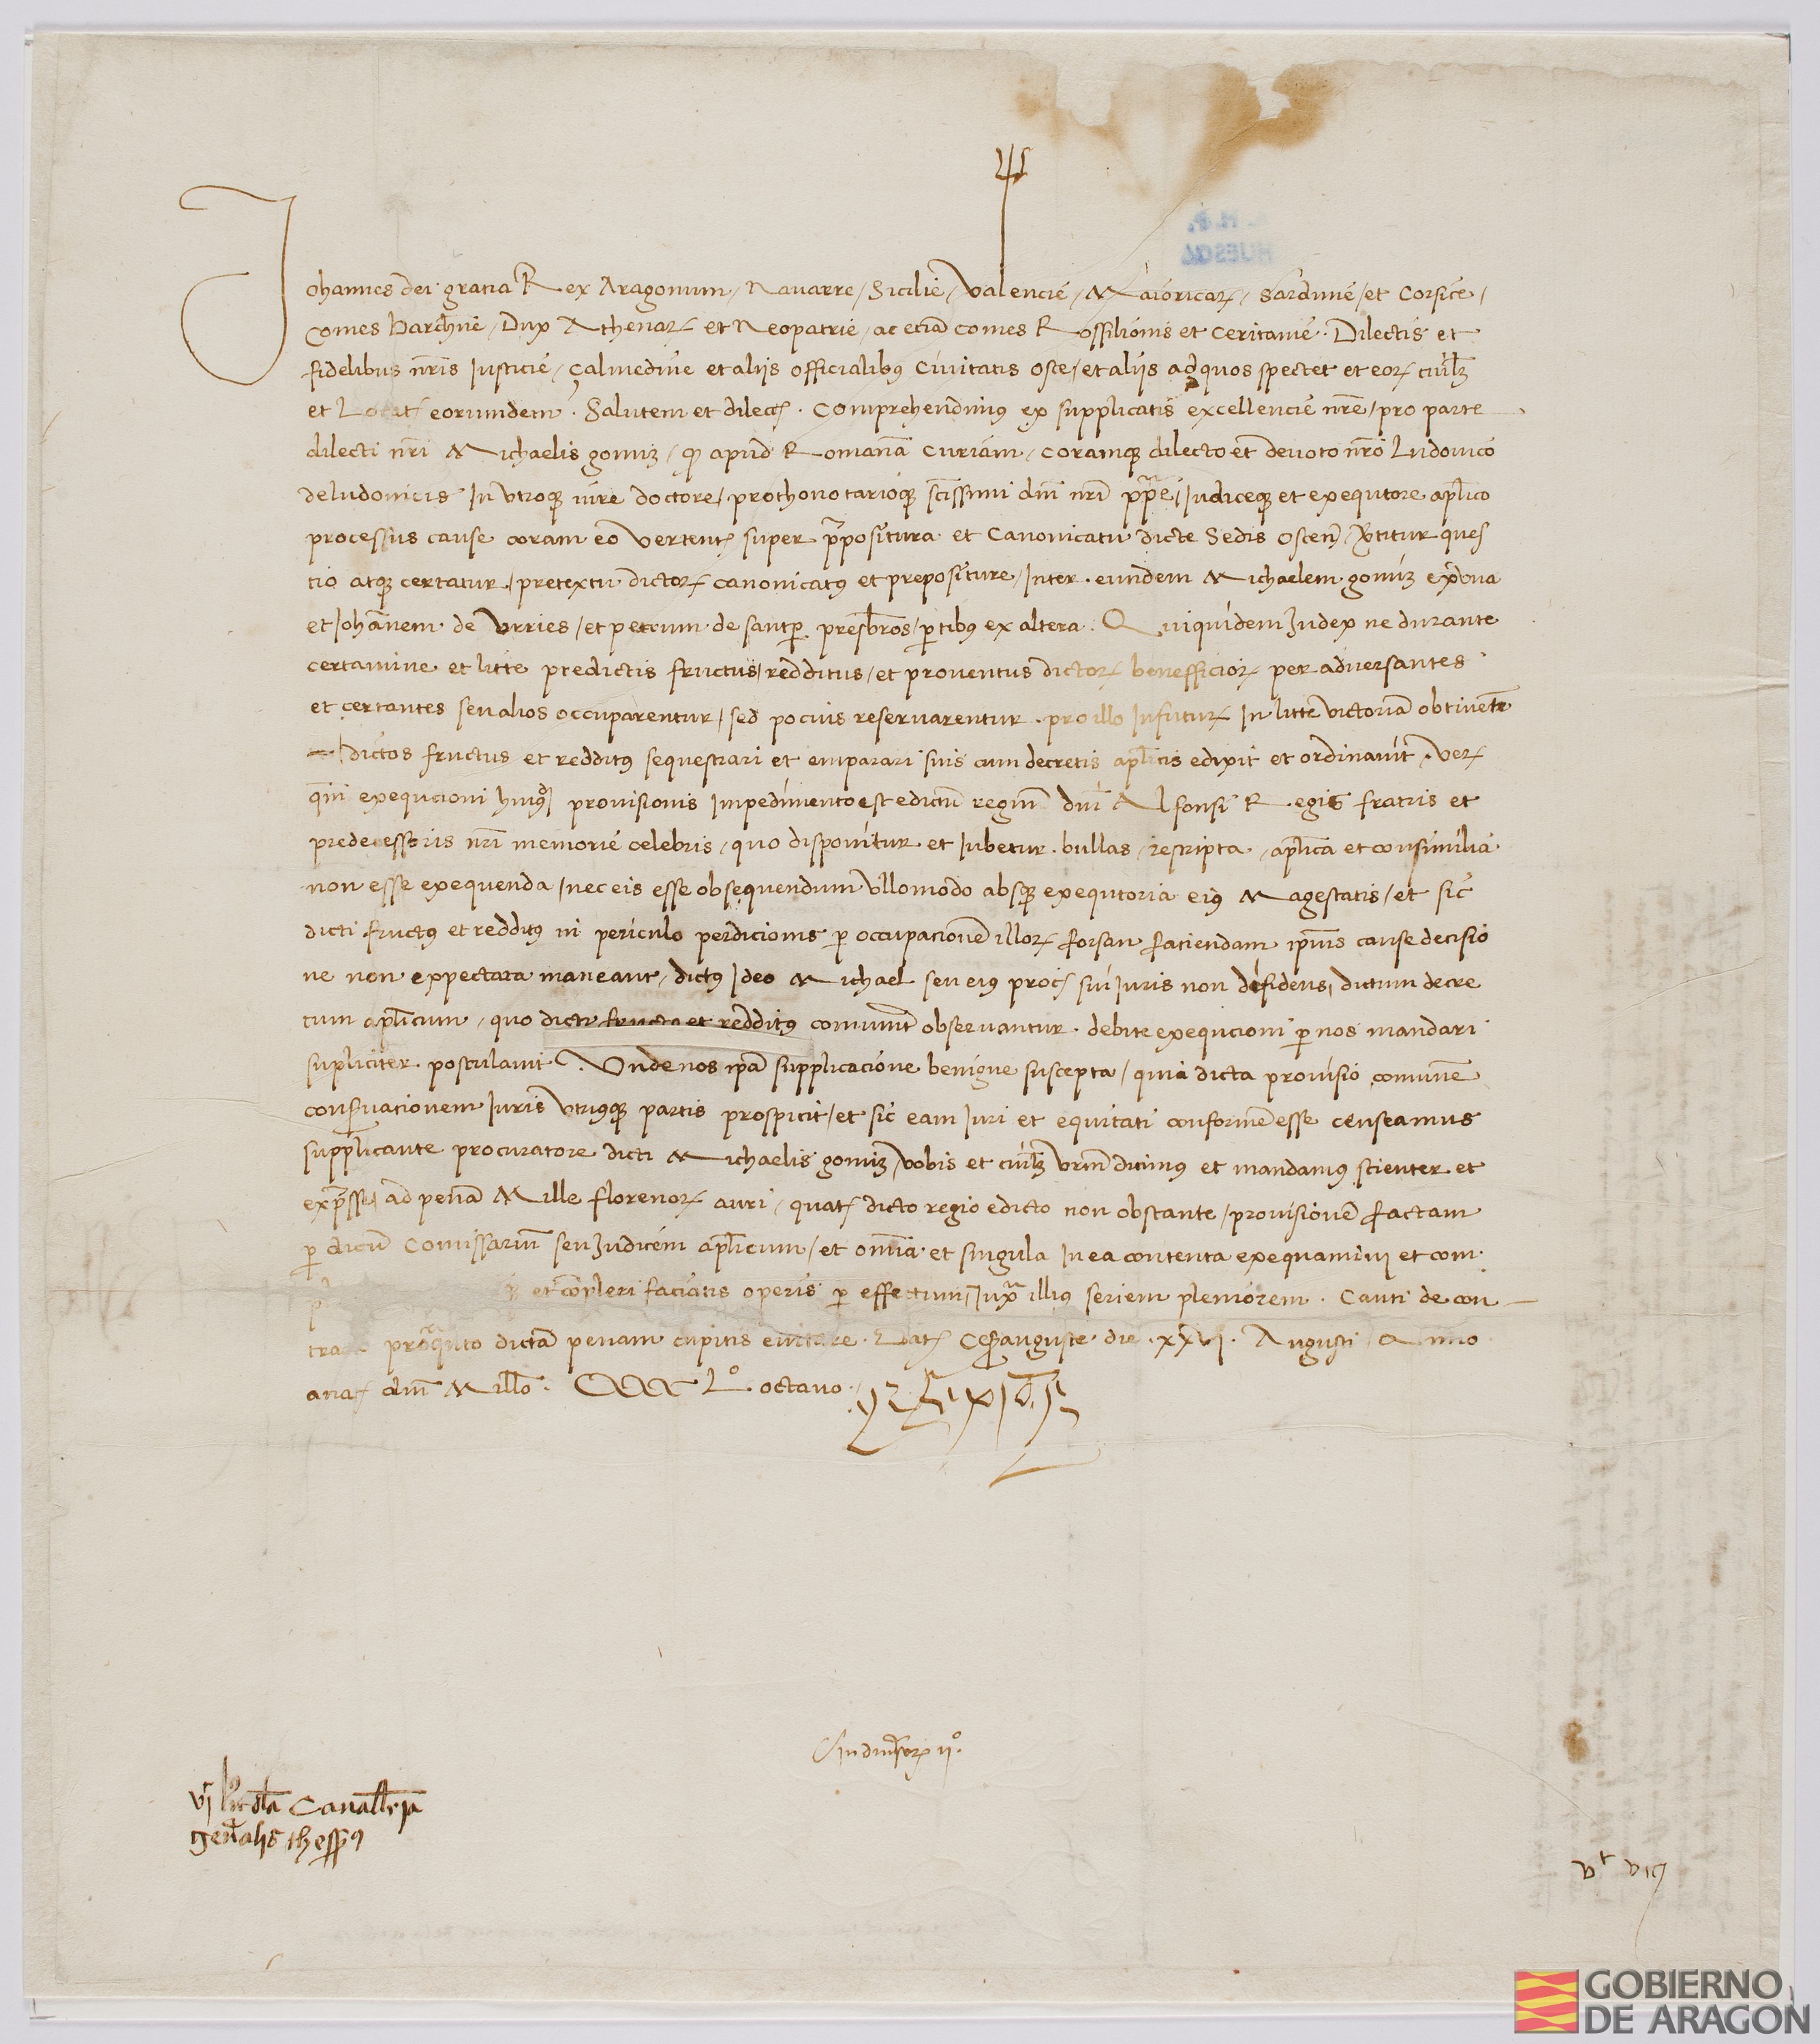 Johannes dei gratia Rex Aragonum / Nauarre / Sicilie / Valencie / Maioricaꝝ / Sardinie / et Corsice /
Comes barchn̄e / Dux Athenaꝝ et Neopatrie / ac eciā comes Rossilionis et Ceritanie . Dilectis et
fidelibus nr̄is Justicie / Çalmedine et aliis officialibꝰ Ciuitatis Osce / et aliis ad quos spectet et eoꝝ cuil̄ꝫ
et eorumdem . Salutem et dilecc̄ . Comprehendimus ex supplicatis excellencie nr̄e / pro parte
dilecti nr̄i Michaelis gomiz / ꝙ apud Romanā Curiam / coramqꝫ dilecto et deuoto nr̄o Ludouico
de ludouicis In Vtroqꝫ iure doctore / prothonotarioqꝫ sc̄issimi dn̄i nr̄i pp̄e / Iudiceqꝫ et exequtore apl̄ico
processus cause coram eo Vertent̄ super p̄positura et Canonicatu dicte Sedis Oscen̄ / V̄titur ques
tio atqꝫ certatur / pretextu dictoꝝ canonicatꝰ et prepositure / Inter eundem Michaelem gomiz ex vna
et Johānem de Vrries / et petrum de santꝑ presbr̄os / ꝑtibꝰ ex altera . Quiquidem Iudex ne durante
certamine et litte predictis fructus / redditus / et prouentus dictoꝝ benefficioꝝ per aduersantes
et certantes seu alios occuparentur / sed pocius reseruarentur . pro illo Infutuꝝ In litte victoriā obtinente
dictos fructus et redditꝰ sequestrari et emparari suis cum decretis apl̄icis edixit et ordinauit . Veꝝ
qm̄ exequcioni huiꝰ provisionis Impedimento est edictū regiū dn̄i Alfonsi Regis fratris et
predecessoris nr̄i memorie celebris / quo disponitur et Iubetur . bullas / rescripta / apl̄ica et consimilia
non esse exequenda / nec eis esse obsequendum Vllomodo absqꝫ exequtoria eiꝰ Magestatis / et sic
dicti fructꝰ et redditꝰ in periculo perdicionis ꝑ occupacionē illoꝝ forsan faciendam ip̄ius cause decisio
ne non expectata maneant / dictꝰ Ideo Michael seu eiꝰ proc̄ sui Juris non difidens / dictum decre
tum apl̄icum / quo dicti fructꝰ et redditꝰ comunit̄ obseruantur . debite exequcioni ꝑ nos mandari
supliciter postulauit . Unde nos ip̄a supplicacione benigne suscepta / quia dicta prouisio comunē
conseruacionem Iuris Vtriusqꝫ partis prospicit / et sic eam Iuri et equitati conformē esse censeamus
supplicante procuratore dicti Michaelis gomiz / vobis et cuil̄ꝫ vr̄m dicimꝰ et mandamꝰ scienter et
exp̄sse / ad penā Mille florenoꝝ auri / quat̄ dicto regio edicto non obstante / prouisionē factam
ꝑ dictū Comissariū seu Iudicem apl̄icum / et omīa et singula In ea contenta exequamini et com
et cōpleri faciatis operis ꝑ effectum / Iux̄ illius seriem pleniorem . Cauti de con
pro quto dictā penam cupitis euitare . Dat̄ Cesarauguste die . xxvi . Augusti Anno
a nat̄ dn̄i Mill̄o . CCCC Lº octauo .
In diuersoꝝ ijº
Vt lud. dela Cauall̄eria
gen̄alis thess̄ꝰ
A.H.P.
HUESCA
GOBIERNO
DE ARAGON